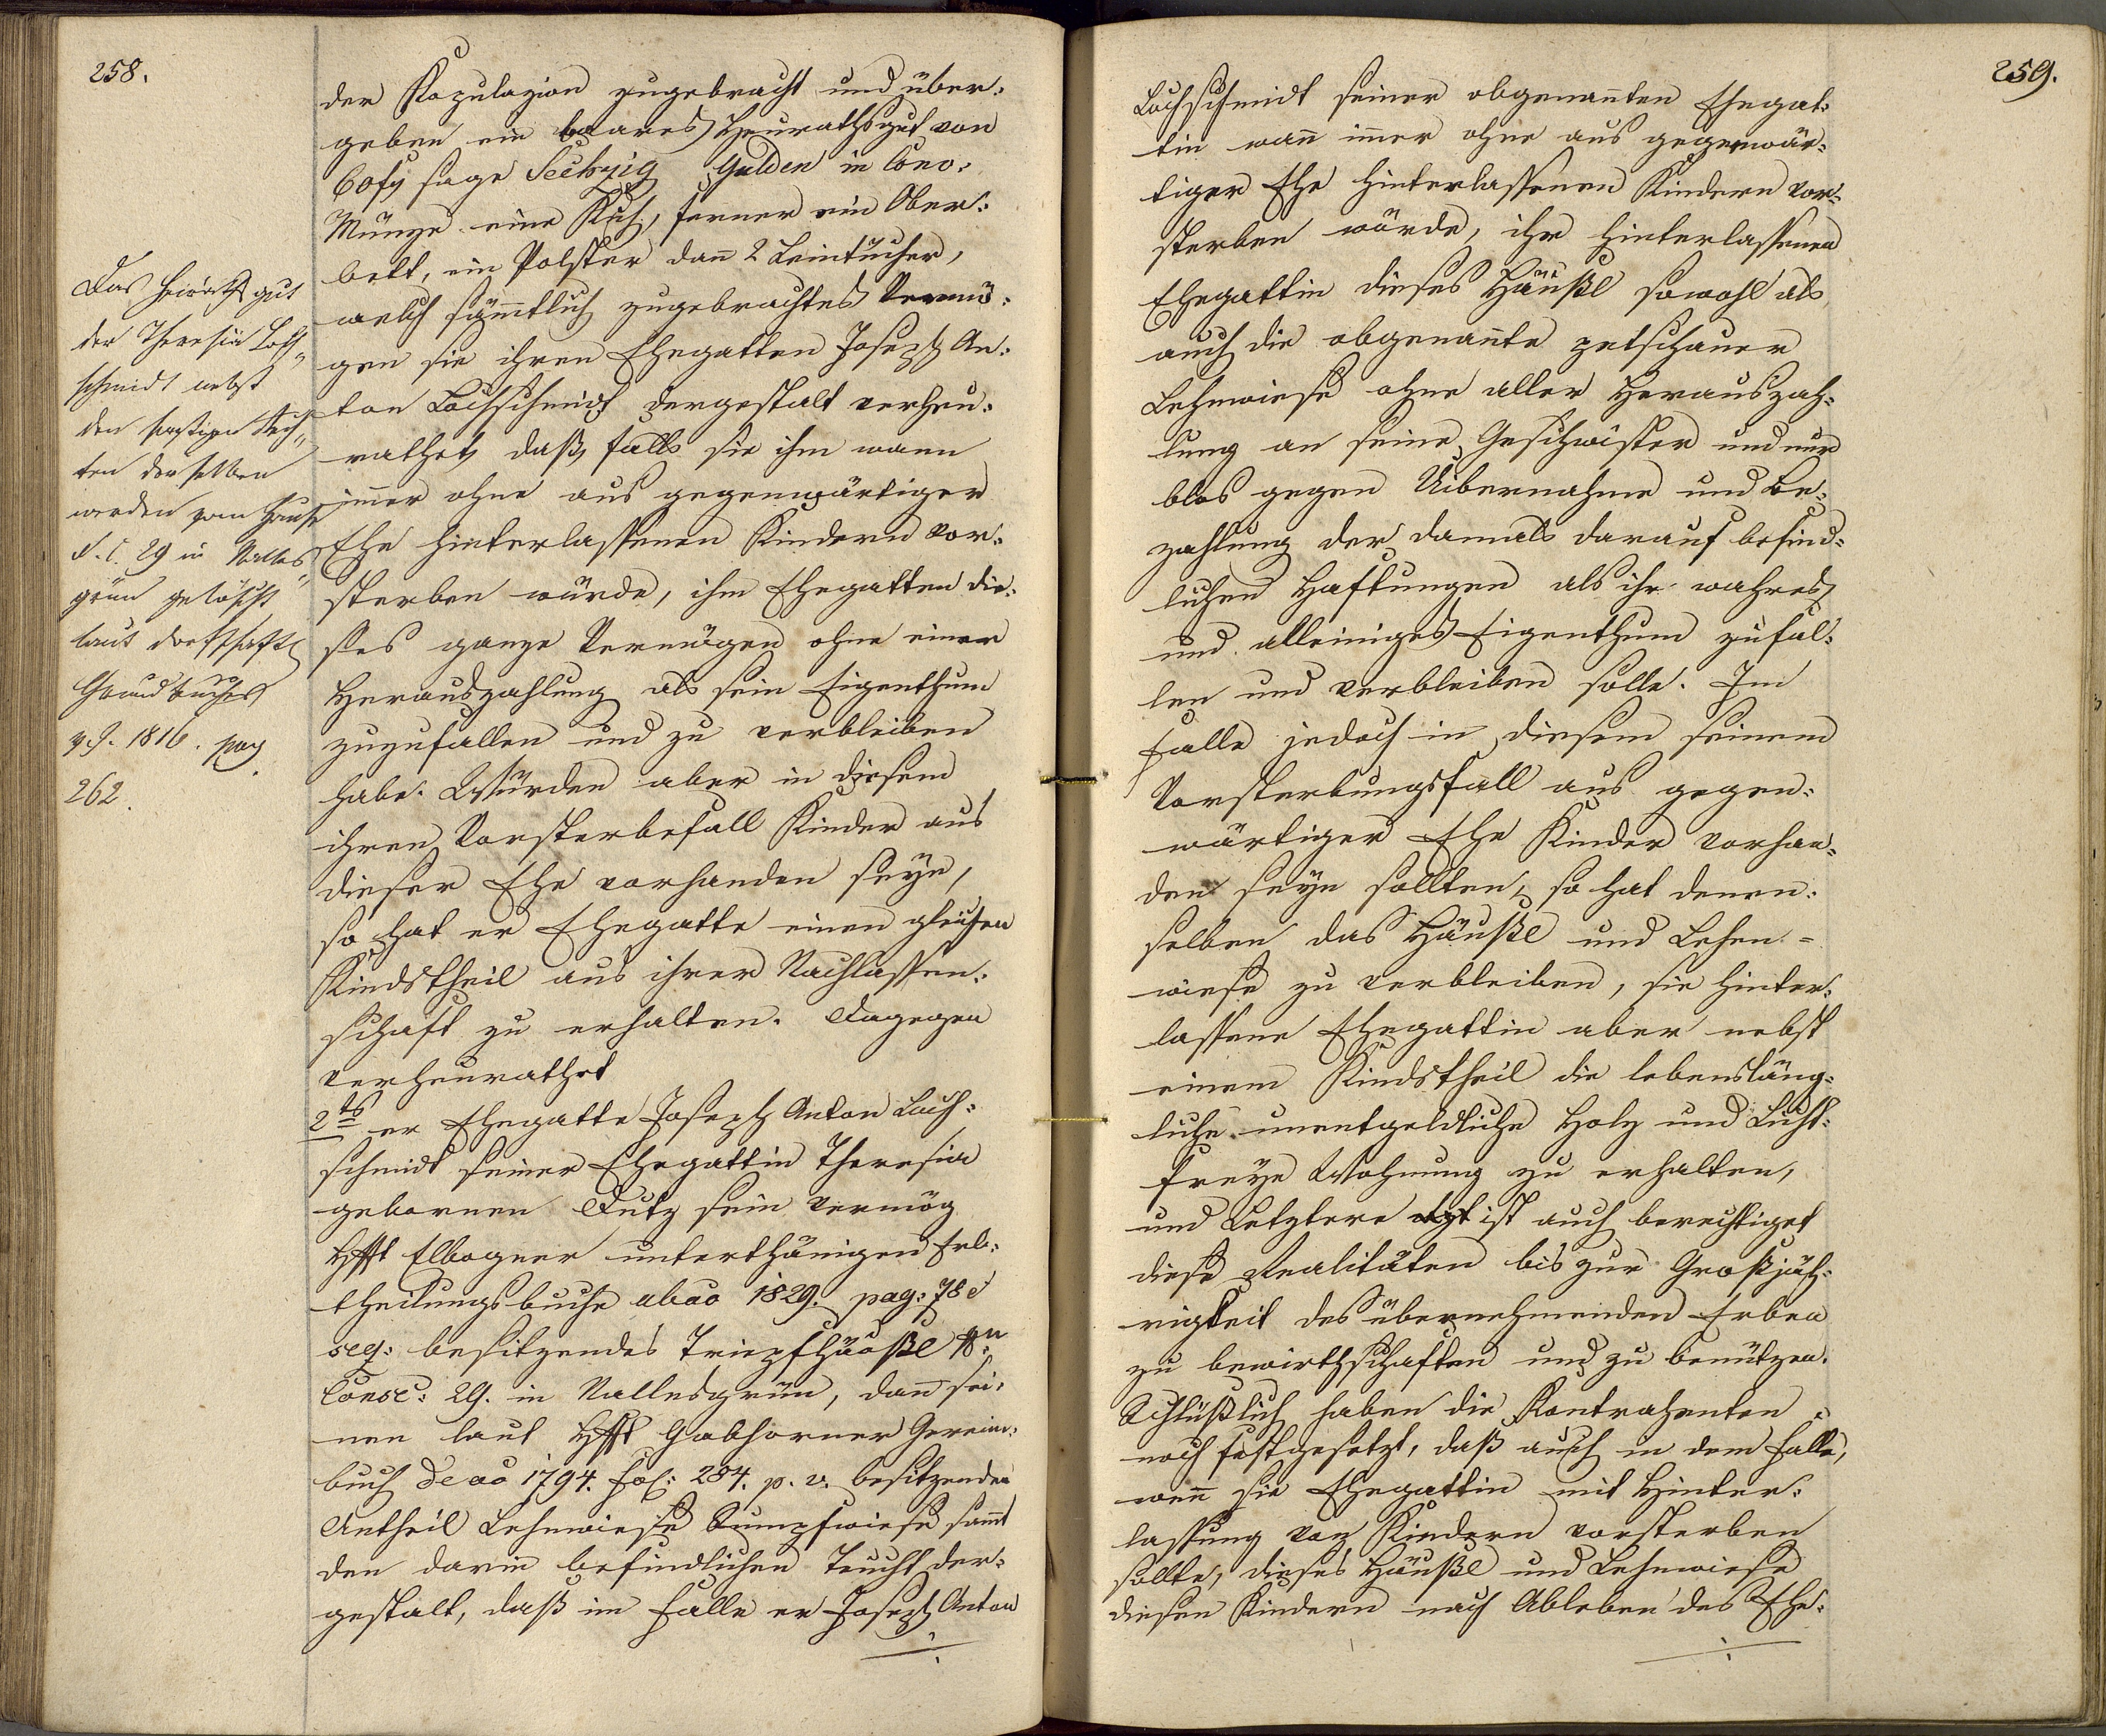 258.
der Kopulazion zugebracht und über:
geben ein baares Heurathsgut von
60 fl sage Sechzig Gulden in Conv:
Münze eine Kuh, ferner ein Ober:
bett, ein Polster dan̅ 2 Leintücher,
welch sämmtlich zugebrachtes Vermö:
gen sie ihren Ehegatten Joseph An:
ton Lochschmidt dergestalt verheu:
rathet, daß falls sie ihm wann
im̅er ohne aus gegenwärtiger
Ehe hinterlassenen Kindern vor:
sterben würde, ihm Ehegatten die:
ses ganze Vermögen ohne einer
Herauszahlung als sein Eigenthum
zuzufallen und zu verbleiben
habe. Würden aber in diesem
ihren Vorsterbefall Kinder aus
dieser Ehe vorhanden seyn,
so hat er Ehegatte einen gleichen
Kindstheil aus ihrer Nachlassen:
schaft zu erhalten. Dagegen
verheurathet
2ts er Ehegatte Joseph Anton Loch:
schmidt seiner Ehegattin Theresia
gebornen Dutz sein vermög
Hfft Elbogner unterthänigen Erb:
theilungsbuche ab ao 1829. pag: 78 et
seq: besitzendes Tripfhäußl sub Nro
Consc: 29. in Nallesgrün, dan̅ sei:
nen laut Hfft Gabhorner Gerein:
buch de ao 1794. fol: 284. p. v. besitzenden
Antheil Lehnwiese Sumpfwiese sam̅t
den darin befindlichen Teucht der:
gestalt, daß im Falle er Joseph Anton
Das Heuraths gut
der Theresia Loch„
schmidt nebst
den sonstigen Rech„
ten derselben
werden vom Hause
N. C. 29 in Nalles„
grün gelöscht
laut dorfschaftl
Grundbuches
v. J. 1816. pag
262.
259.
Lochschmidt seiner obgenan̅ten Ehegat:
tin wan̅ im̅er ohne aus gegenwär:
tiger Ehe hinterlassenen Kindern vor:
sterben würde, ihr hinterlassenen
Ehegattin dieses Häußl sowohl als
auch die obgenan̅te petschauer
Lehnwiese ohne aller Herauszah:
lung an seine Geschwister und nur
blos gegen Uibernahme und Be:
zahlung der damals darauf befind:
lichen Haftungen als ihr wahres
und alleiniges Eigenthum zufal:
len und verbleiben solle. Im
Falle jedoch in diesem seinem
Vorsterbungsfall aus gegen:
wärtiger Ehe Kinder vorhan:
den seyn sollten, so hat denen:
selben das Häußl und Lehen=
wiese zu verbleiben, sie hinter:
lassene Ehegattin aber nebst
einem Kindstheil die lebensläng:
liche unentgeldliche Holz und Licht:
freye Wohnung zu erhalten,
und Letztere ist auch berechtiget
diese Realitäten bis zur Großjäh:
rigkeit des übernehmenden Erben
zu bewirthschaften und zu benützen.
Schlüßlich haben die Kontrahenten
noch festgesetzt, daß auch in dem Falle,
wen̅ sie Ehegattin mit Hinter:
lassung von Kindern vorsterben
sollte, dieses Häußl und Lehnwiese
diesen Kindern nach Ableben des Ehe: